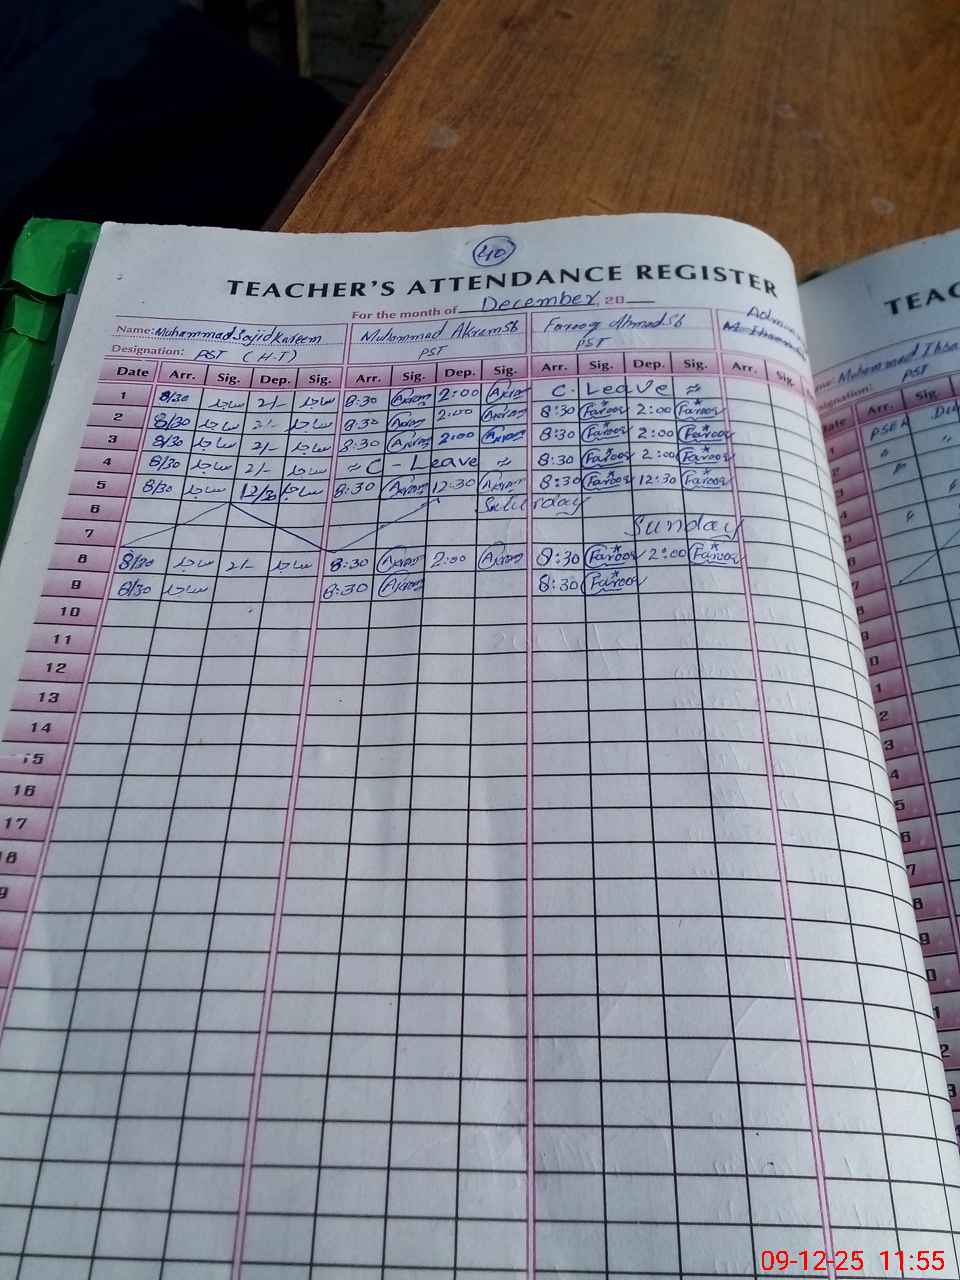 40
TEACHER'S ATTENDANCE REGISTER
For the month of December, 20
Name: Muhammad Sajid Kareem Muhammad Akram Sb Farooq Ahmad Sb
Designation: PST (H.T) PST PST
Date Arr. Sig. Dep. Sig. Arr. Sig. Dep. Sig. Arr. Sig. Dep. Sig. Arr. Sig.
1 8/30 ساجد 2/- ساجد 8:30 Akram 2:00 Akram C. Leave
2 8/30 ساجد 2/- ساجد 8:30 Akram 2:00 Akram 8:30 Farooq 2:00 Farooq
3 8/30 ساجد 2/- ساجد 8:30 Akram 2:00 Akram 8:30 Farooq 2:00 Farooq
4 8/30 ساجد 2/- ساجد C - Leave 8:30 Farooq 2:00 Farooq
5 8/30 ساجد 12/30 ساجد 8:30 Akram 12:30 Akram 8:30 Farooq 12:30 Farooq
6 Saturday
7 Sunday
8 8/30 ساجد 2/- ساجد 8:30 Akram 2:00 Akram 8:30 Farooq 2:00 Farooq
9 8/30 ساجد 8:30 Akram 8:30 Farooq
10
11
12
13
14
15
16
17
18
9
TEAC
Muhammad Ihsa
PST
Arr. Sig.
09-12-25 11:55